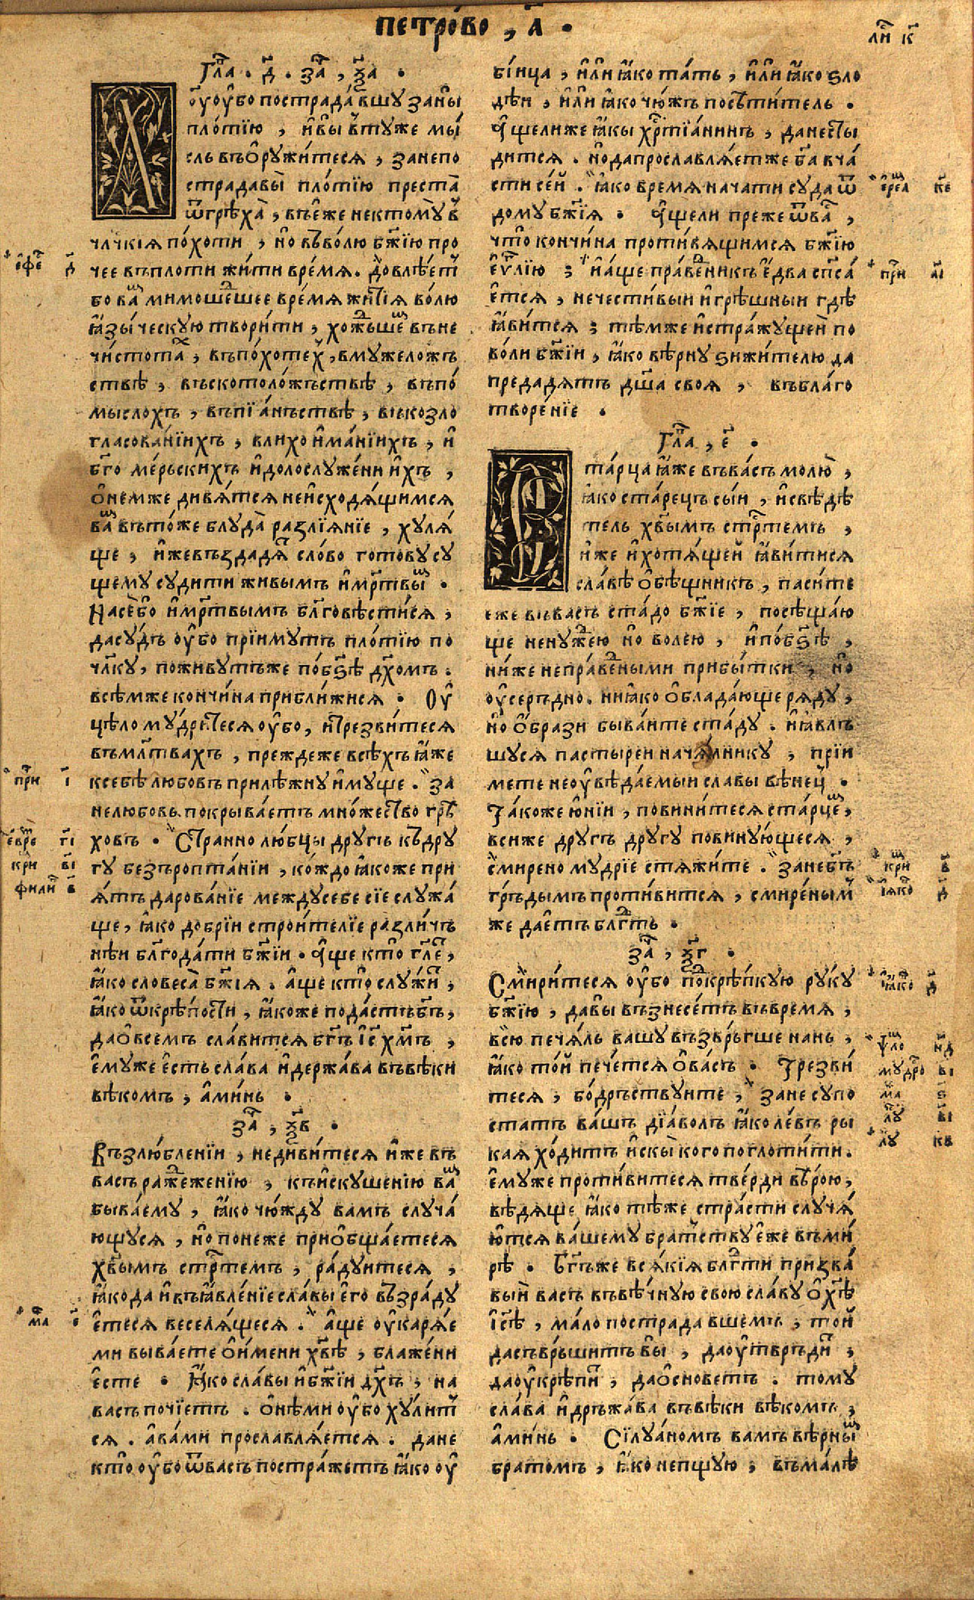 петро́во , а҃ .
ли҃ к҃
Гла҃ . д҃ . за҃ , н҃а .
Х҃ оу҆у҆бо пострада́вшу заны̀
пло́тїю , и҆вы̀ втуже мы́
сль въѻ҆ружи́теся , занепо
страдавы̀ пло́тїю преста̀
ѿгрѣха̀ , въе҆́же нектомꙋ̀ в̾
чл҃чкїѧ по́хоти , но̀ въво́лю бж҃їю про
чее въплоти жи́ти вре́мѧ . Довлѣ́етъ
бо ва́мъ мимоше́дшее вре́мѧ житїѧ̀ во́лю
ꙗ҆зы́ческую твори́ти , хо́ждьшемъ въне
чистота́хъ , въпо́хотехъ , вмужеложъ
ствѣ , въскотоло́жьствѣ , въпо́
мыслохъ , въпїа́ньствѣ , въкозло
гласова́нїихъ , влихоима́нїихъ , и҆
бг҃оме́рьскихъ и҆долослуже́нїихъ ,
ѻ҆не́мже дивѧ́тсѧ неисходѧ́щимсѧ
ва́мъ въто́же блуда̀ разлїѧ́нїе , хулѧ́
ще , и҆́жевъздадѧ́тъ сло́во гото́ву су
щему суди́ти живы́мъ и҆ме́ртвымъ .
Насе́бо и҆ме́ртвымъ бл҃говѣсти́сѧ ,
дасу́дъ оу҆́бо прїи́мутъ пло́тїю по
чл҃ку , пожи́вутъже побз҃ѣ дх҃омъ .
всѣ́мже кончи́на прибли́жисѧ . Оу҆
цѣломудре́тесѧ оу҆бо , и҆трезви́тесѧ
въмл҃твахъ , пре́ждеже всѣ́хъ ꙗ҆́же
ксебѣ̀ любо́вь прилѣ́жну и҆му́ще . За
нелюбо́вь покрыва́етъ мно́жество грѣ
хо́въ . Страннолю́бцы дру́гъ къдру
гу безъропта́нїи , ко́ждо ꙗ҆́коже при
ѧ́тъ дарова́нїе междусебе сїе служа́
ще , ꙗ҆́ко до́брїи строи́телїе разли́чь
нѣи бл҃года́ти бж҃їи . а҆́ще кто̀ гл҃етъ ,
ꙗ҆́ко словеса̀ бж҃їѧ . а҆́ще кто̀ слу́житъ ,
ꙗ҆́ко ѿкрѣ́пости , ꙗ҆́коже пода́стъбг҃ъ ,
даѻ҆все́мъ сла́витсѧ бг҃ъ і҆с҃ хм҃ъ ,
е҆му́же е҆́сть сла́ва и҆держа́ва въвѣ́ки
вѣкомъ , а҆ми́нь .
за҃ , н҃в .
Възлю́бленїи , недиви́тесѧ и҆́же въ
ва́съ раж҆же́нїю , къискуше́нїю ва́мъ
быва́ему , ꙗ҆́ко чю́жду ва́мъ случа́
ющусѧ , но̀ поне́же приѻ҆бща́етесѧ
хв҃ымъ стр҃темъ , ра́дуитесѧ ,
ꙗ҆́кода и҆въꙗ҆вле́нїе сла́вы е҆го̀ възра́ду
е҆тесѧ веселѧ́щесѧ . а҆́ще оу҆карѧ́е
ми быва́ете ѻ҆и҆́мени хв҃ѣ , блаже́ни
е҆сте . ꙗ҆́ко сла́вы и҆бж҃їи дх҃ъ , на
ва́съ почїе́тъ . ѻ҆нѣ́ми оу҆бо ху́литъ
сѧ . а҆ва́ми прославлѧ́етсѧ . дане
кто̀ оу҆бо ѿва́съ постра́жетъ ꙗ҆́ко оу҆
бі́ица , и҆лѝ ꙗ҆́ко та́ть , и҆лѝ ꙗ҆́ко ѕло
дѣ́и , и҆лѝ ꙗ҆́ко чю́жъ посѣти́тель .
а҆́щелиже ꙗ҆́кы хр҃тїа́нинъ , данесты
ди́тсѧ . но̀дапрославлѧ́етже бг҃а вча́
сти се́й . ꙗ҆́ко вре́мѧ нача́ти суда̀ ѿ
до́му бж҃їѧ . а҆́щели пре́же ѿва́съ ,
что̀ кончи́на проти́вѧщимсѧ бж҃їю
е҆ѵ҃лїю ; и҆а҆́ще пра́веникъ е҆два̀ сп҃са́
е҆тсѧ , нечести́выи и҆грѣ́шныи гдѣ̀
ꙗ҆ви́тсѧ ; тѣ́мже и҆стра́жущеи по
во́ли бж҃їи , ꙗ҆́ко вѣ́рну ѕижи́телю да
предадѧ́тъ дш҃а своѧ̀ , въблаго
творе́нїе .
Гла҃ , е҃ .
Ста́рца ꙗ҆́же въва́съ молю̀ ,
ꙗ҆́ко ста́рецъ сы́и , и҆свѣдѣ́
тель хв҃ымъ стр҃темъ ,
и҆́же и҆хотѧ́щей ꙗ҆ви́тисѧ
сла́вѣ ѻ҆бѣ́щникъ , паси́те
еже въва́съ ста́до бж҃їе , посѣща́ю
ще нену́жею но̀ во́лею , и҆побз҃ѣ ,
ниже непра́веными прибы́тки , но̀
оу҆се́рьдно . ниꙗ҆́ко ѻ҆блада́юще рѧ́ду ,
но̀ ѻ҆́брази быва́ите ста́ду . и҆ꙗ҆́вль
шусѧ па́стыремъ нача́лнику , прїи́
мете неоу҆вѣда́емыи сла́вы вѣне́цъ .
Та́коже ю҆́нїи , повини́тесѧ ста́рцемъ ,
всиже дру́гъ дру́гу повину́ющесѧ ,
смиреному́дрїе стѧжи́те . Занебг҃ъ
го́рьдымъ проти́витсѧ , смире́нымъ
же дае́тъ бл҃гть .
за҃ , н҃г .
Смири́тесѧ оу҆бо подкрѣ́пкую ру́ку
бж҃їю , давы̀ възнесе́тъ въвре́мѧ ,
всю̀ печа́ль ва́шу възве́ргше нань ,
ꙗ҆́ко то́й пече́тсѧ ѻ҆ва́съ . Трезви́
тесѧ , бо́дрьствуите , Зане супо
ста́тъ ва́шъ дїа́волъ ꙗ҆́ко ле́въ ры
каѧ хо́дитъ и҆скы̀ кого поглоти́ти .
е҆му́же проти́витесѧ тве́рди вѣ́рою ,
вѣдѧ́ще ꙗ҆́ко тѣ́же стра́сти случѧ́
ютсѧ ва́шему бра́тству е҆́же въми́
рѣ . Бг҃ъже всѧ́кїѧ бл҃гти призва́
вый ва́съ въвѣ́чную свою̀ сла́ву ѻ҆хѣ҃
і҆с҃ѣ , ма́ло пострада́вшемъ , то́й
дасъвръши́тъ вы̀ , даоу҆твръди́тъ ,
даоу҆крѣпи́тъ , даѻ҆снове́тъ . тому̀
сла́ва и҆дръжа́ва въвѣ́ки вѣкомъ ,
а҆ми́нь . Силуа́номъ ва́мъ вѣ́рнымъ
бра́томъ , ꙗ҆́ко непщу́ю , въма́лѣ
е҆фе д҃
при і҃
евре г҃і
кри в҃і
фили в҃
ма е҃
і҆ере́а к҃е
при а҃і
кри в҃
і҆ꙗ҆ко д҃
і҆ꙗ҆ко д҃
ѱло н҃д
мудро в҃і
ма ѕ҃
лу в҃і
лу к҃в